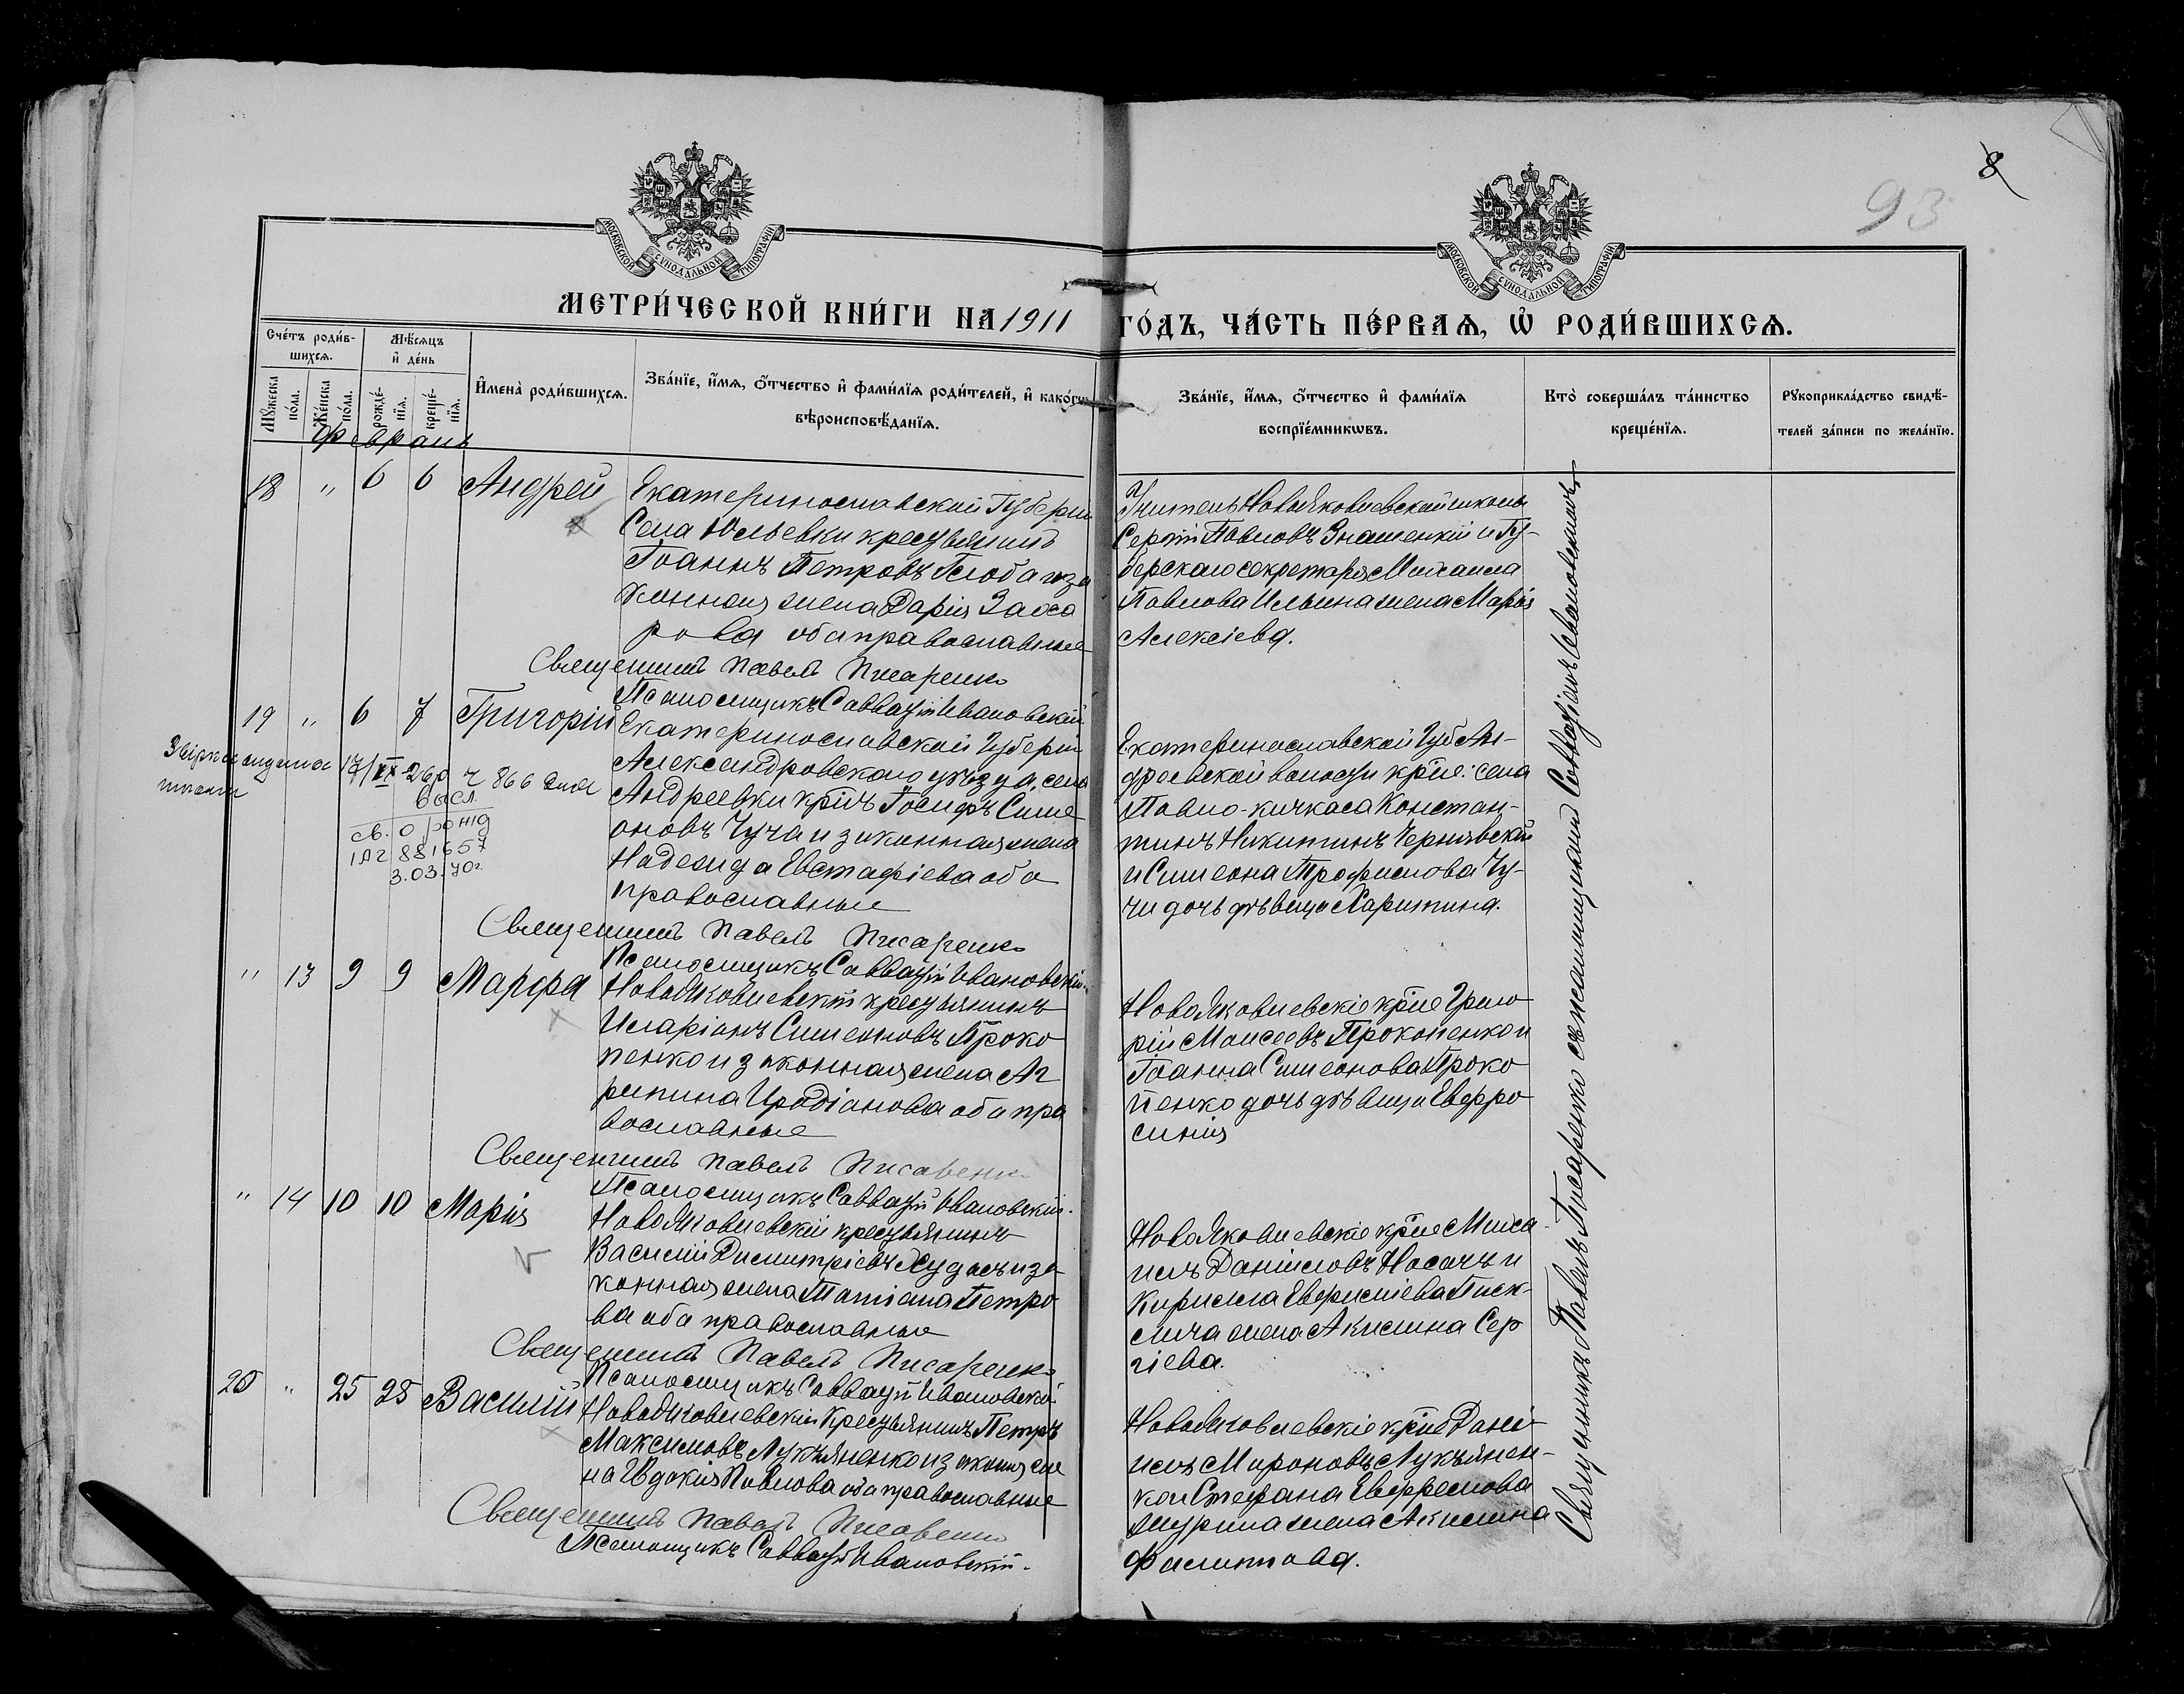 8
93
МОСКОВСКОЙ СѴНОДАЛЬНОЙ ТИПОГРАФІИ
МОСКОВСКОЙ СѴНОДАЛЬНОЙ ТИПОГРАФІИ
МЕТРИ́ЧЕСКОЙ КНИ́ГИ НА 1911 ГО́ДЪ, ЧА́СТЬ ПЕ́РВАѦ, Ѡ РОДИ́ВШИХСѦ.
Сче́тъ роди́в-
шихсѧ.
Мѣ́сѧцъ
и де́нь
Мꙋ́жеска
по́ла.
Же́нска
по́ла.
рожде́-
нїѧ.
креще́-
нїѧ.
И҆мена̀ роди́вшихсѧ.
Зва́нїе, и҆́мѧ, ѻ҆́тчество и҆ фами́лїѧ роди́телей, и҆ како́гѡ
вѣроисповѣ́данїѧ.
Зва́нїе, и҆́мѧ, ѻ҆́тчество и҆ фами́лїѧ
воспрїе́мникѡвъ.
Кто̀ соверша́лъ та́инство
креще́нїѧ.
Рꙋкоприкла́дство свидѣ́-
телей за́писи по жела́нїю.
Февраль
18 " 6 6 Андрей
Екатеринославской Губерніи
Села Юльевки крестьянинъ
Іоаннъ Петровъ Глоба и за
конная жена Дарія Заха
рова оба православные
Священникъ Павелъ Писаренко
Псаломщикъ Савватій Ивановскій
Учитель НовоЯковлевской школы
Сергій Павловъ Знаменскій и Гу-
берскаго секретаря Михаила
Павлова Ильина жена Марія
Алексіева.
19 " 6 7 Григорій
Екатеринославской Губерніи
Александровскаго уѣзда, села
Андреевки кр҃інъ Іосифъ Симе
оновъ Чуча и законная жена
Надежда Евстафіева оба
православные
Священникъ Павелъ Писаренко
Псаломщикъ Савватій Ивановскій
высл
св. о рожд
881657
3.03.70г.
Екатеринославской Губ Ан-
дреевской волости кр҃не: села
Павло-кичкаса Констан-
тинъ Никитинъ Чернявскій
и Симеона Трофимова Чу-
чи дочь дѣвица Харитина.
" 13 9 9 Марфа
НовоЯковлевскій крестьянинъ
Иларіонъ Симеоновъ Проко
пенко и законная жена Аг
рипина Иродіанова оба пра
вославные
Священникъ Павелъ Писаренко
Псаломщикъ Савватій Ивановскій.
НовоЯковлевскіе кр҃не Григо
рій Моисеевъ Прокопенко и
Іоанна Симеонова Проко
пенко дочь дѣвица Евфро
синія
" 14 10 10 Марія
НовоЯковлевскій крестьянинъ
Василій Димитріевъ Худасъ и за
конная жена Татіана Петро
ва оба православные
Священникъ Павелъ Писаренко
Псаломщикъ Савватій Ивановскій
НовоЯковлевскіе кр҃не Миха-
илъ Даніиловъ Носачъ и
Кирилла жена Акилина Сер
гіева.
20 " 25 25 Василій
НовоЯковлевскій Крестьянинъ Петръ
Максимовъ Лукьяненко и законая же
на Евдокія Павлова оба православные
Священникъ Павелъ Писаренко
Псаломщикъ Савватій Ивановскій.
НовоЯковлевскіе кр҃не Дані-
илъ Мироновъ Лукьянен-
ко и Стефана Евфремова
жена Акилина
Филиппова.
Священникъ Павелъ Писаренко съ псаломщикомъ Савватіемъ Ивановскимъ